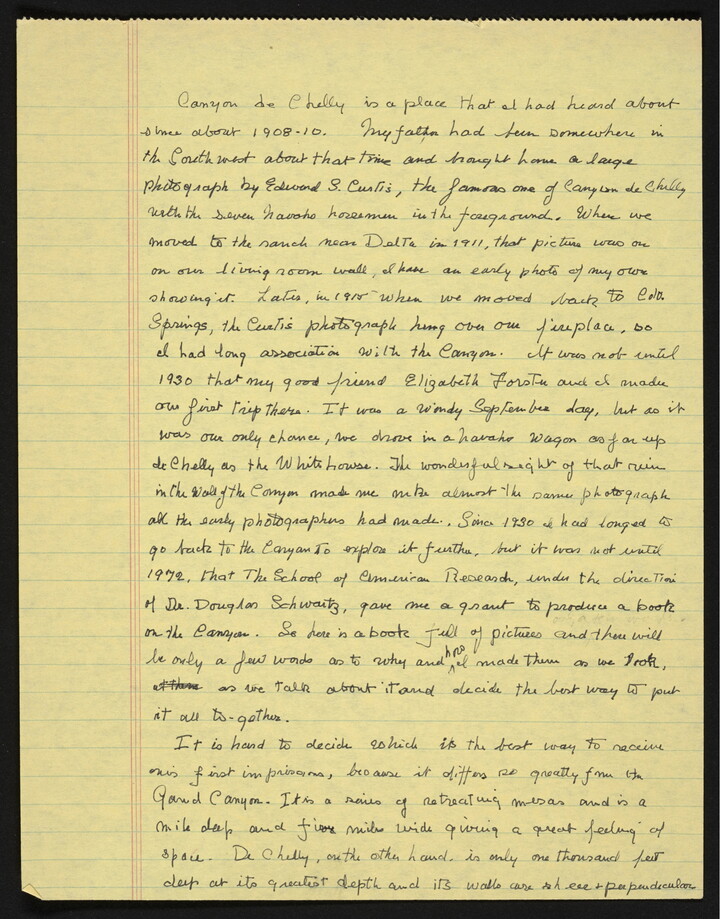 Canyon de Chelly is a place that I had heard about
since about 1908-10. My father had been somewhere in
the Southwest about that time and brought home a large
photograph by Edward S. Curtis, the famous one of Canyon de Chelly
with the seven Navaho horsemen in the foreground. When we
moved to the ranch near Delta in 1911, that picture was on
on our living room wall, I have an early photo of my own
showing it. Later, in 1915 when we moved back to Colo.
Springs, the Curtis photograph hung over our fireplace, so
I had long association with the Canyon. It was not until
1930 that my good friend Elizabeth Forster and I made
our first trip there. It was a windy September day, but as it
was our only chance, we drove in a Navaho wagon as far up
de Chelly as the White House. The wonderful sight of that ruin
in the Wall of the Canyon made me make almost the same photograph
all the early photographers had made. Since 1930 I had longed to
go back to the Canyon to explore it further, but it was not until
1972, that The School of American Research, under the direction
of Dr. Douglas Schwartz, gave me a grant to produce a book
on the Canyon. So here is a book full of pictures and there will
be only a few words as to why and how I made them as we look,
as we talk about it and decide the best way to put
it all to-gether.
It is hard to decide which is the best way to receive
ones first impressions, because it differs so greatly from the
Grand Canyon. It is a series of retreating mesas and is a
mile deep and five miles wide giving a great feeling of
space. De Chelly, on the other hand, is only one thousand feet
deep at its greatest depth and its walls are sheer + perpendicular